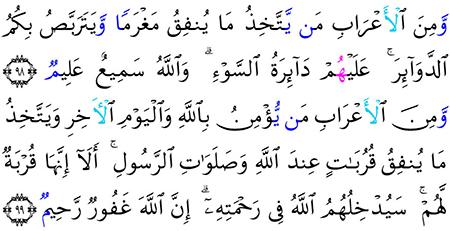 وَمِنَ ٱلۡأَعۡرَابِ مَن يَتَّخِذُ مَا يُنفِقُ مَغۡرَمٗا وَيَتَرَبَّصُ بِكُمُ
ٱلدَّوَآئِرَۚ عَلَيۡهِمۡ دَآئِرَةُ ٱلسَّوۡءِۗ وَٱللَّهُ سَمِيعٌ عَلِيمٞ ٩٨
وَمِنَ ٱلۡأَعۡرَابِ مَن يُؤۡمِنُ بِٱللَّهِ وَٱلۡيَوۡمِ ٱلۡأٓخِرِ وَيَتَّخِذُ
مَا يُنفِقُ قُرُبَٰتٍ عِندَ ٱللَّهِ وَصَلَوَٰتِ ٱلرَّسُولِۚ أَلَآ إِنَّهَا قُرۡبَةٞ
لَّهُمۡۚ سَيُدۡخِلُهُمُ ٱللَّهُ فِي رَحۡمَتِهِۦٓۚ إِنَّ ٱللَّهَ غَفُورٞ رَّحِيمٞ ٩٩